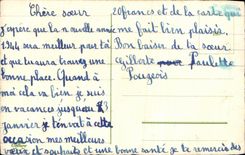 Chère sœur
j'espère que la nouvelle année
1944 sera meilleur pas tà
et que tu aura trouvez une
bonne place. Quand à
moi cela va bien je suis
en vacances jusqueu 3
janvier je t'envoi à cette
occasion mes meilleurs
vœux et souhaits et une bonne santé je te remercis des
20francs et de la carte qui
me fait bien plaisir.
Bon baiser de ta sœur
Gillerte Paulette
Pougeois